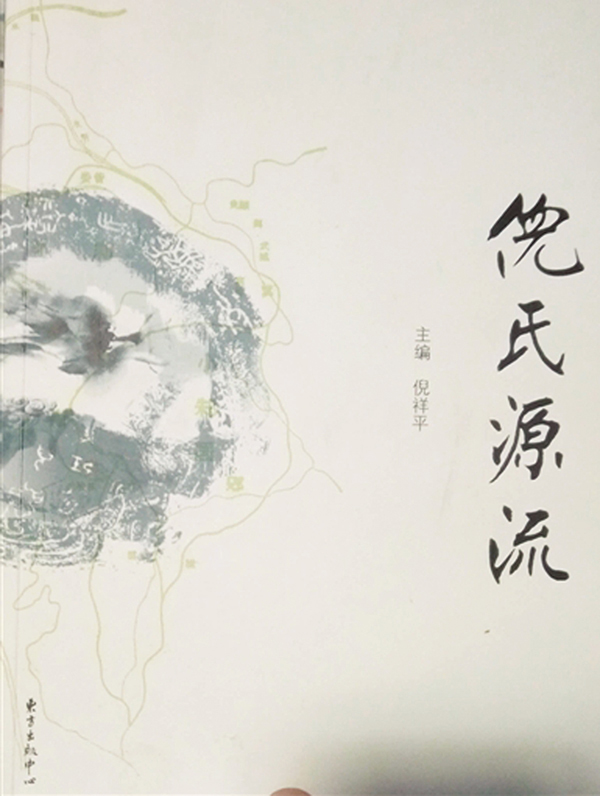 倪氏源流
主编 倪祥平
东方出版中心